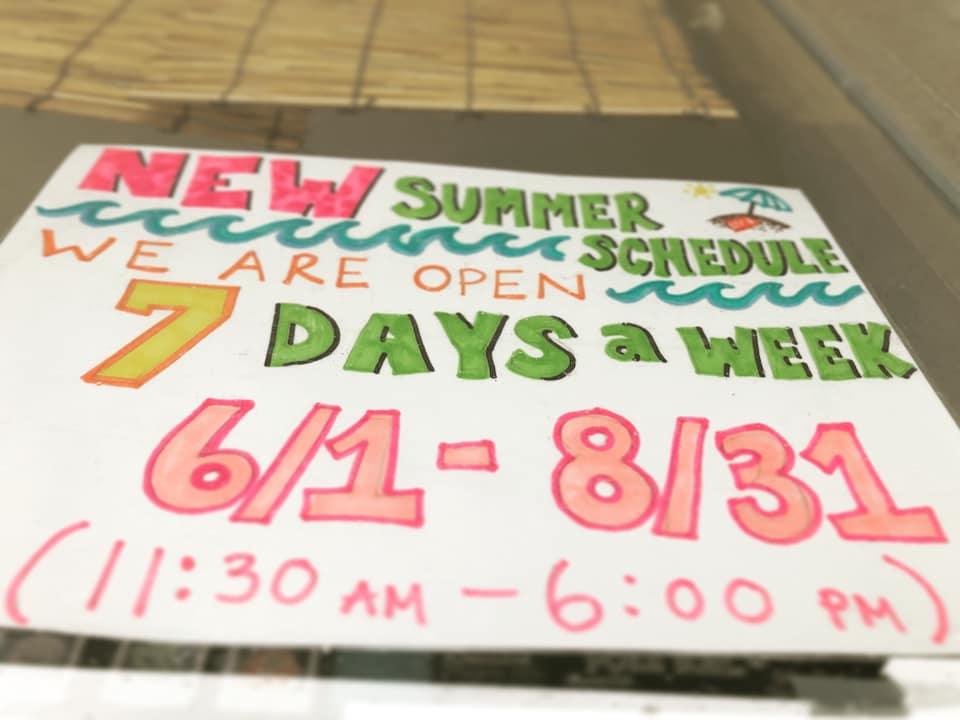 NEW SUMMER
SCHEDULE
WE ARE OPEN
7 DAYS a WEEK
6/1 - 8/31
(11:30 AM - 6:00 PM)